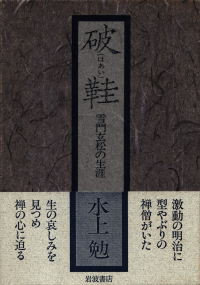 破鞋
はあい
雪門玄松の生涯
水上勉
激動の明治に
型やぶりの
禅僧がいた
生の哀しみを
見つめ
禅の心に迫る
岩波書店